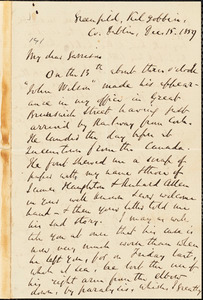 Greenfield, Kilgobbin,
Co. Dublin, Dec. 15, 1859
My dear Garrison
On the 13th about ten o'clock
"John Wilson" made his appear-
ance in my office in Great
Brunswick Street having just
arrived by Railway from Cork.
He landed the day before at
Queenstown from the Canada.
He first showed me a scrap of
paper with my name & those of
James Haughton & Richard Allen
in your well known & ever welcome
hand - & then your letter told me
his sad story. I may as well
tell you at once that his case is
now very much worse than when
he left you, for on Friday last,
when at sea, he lost the use of
his right arm from the elbow
down, by paralysis, which greatly